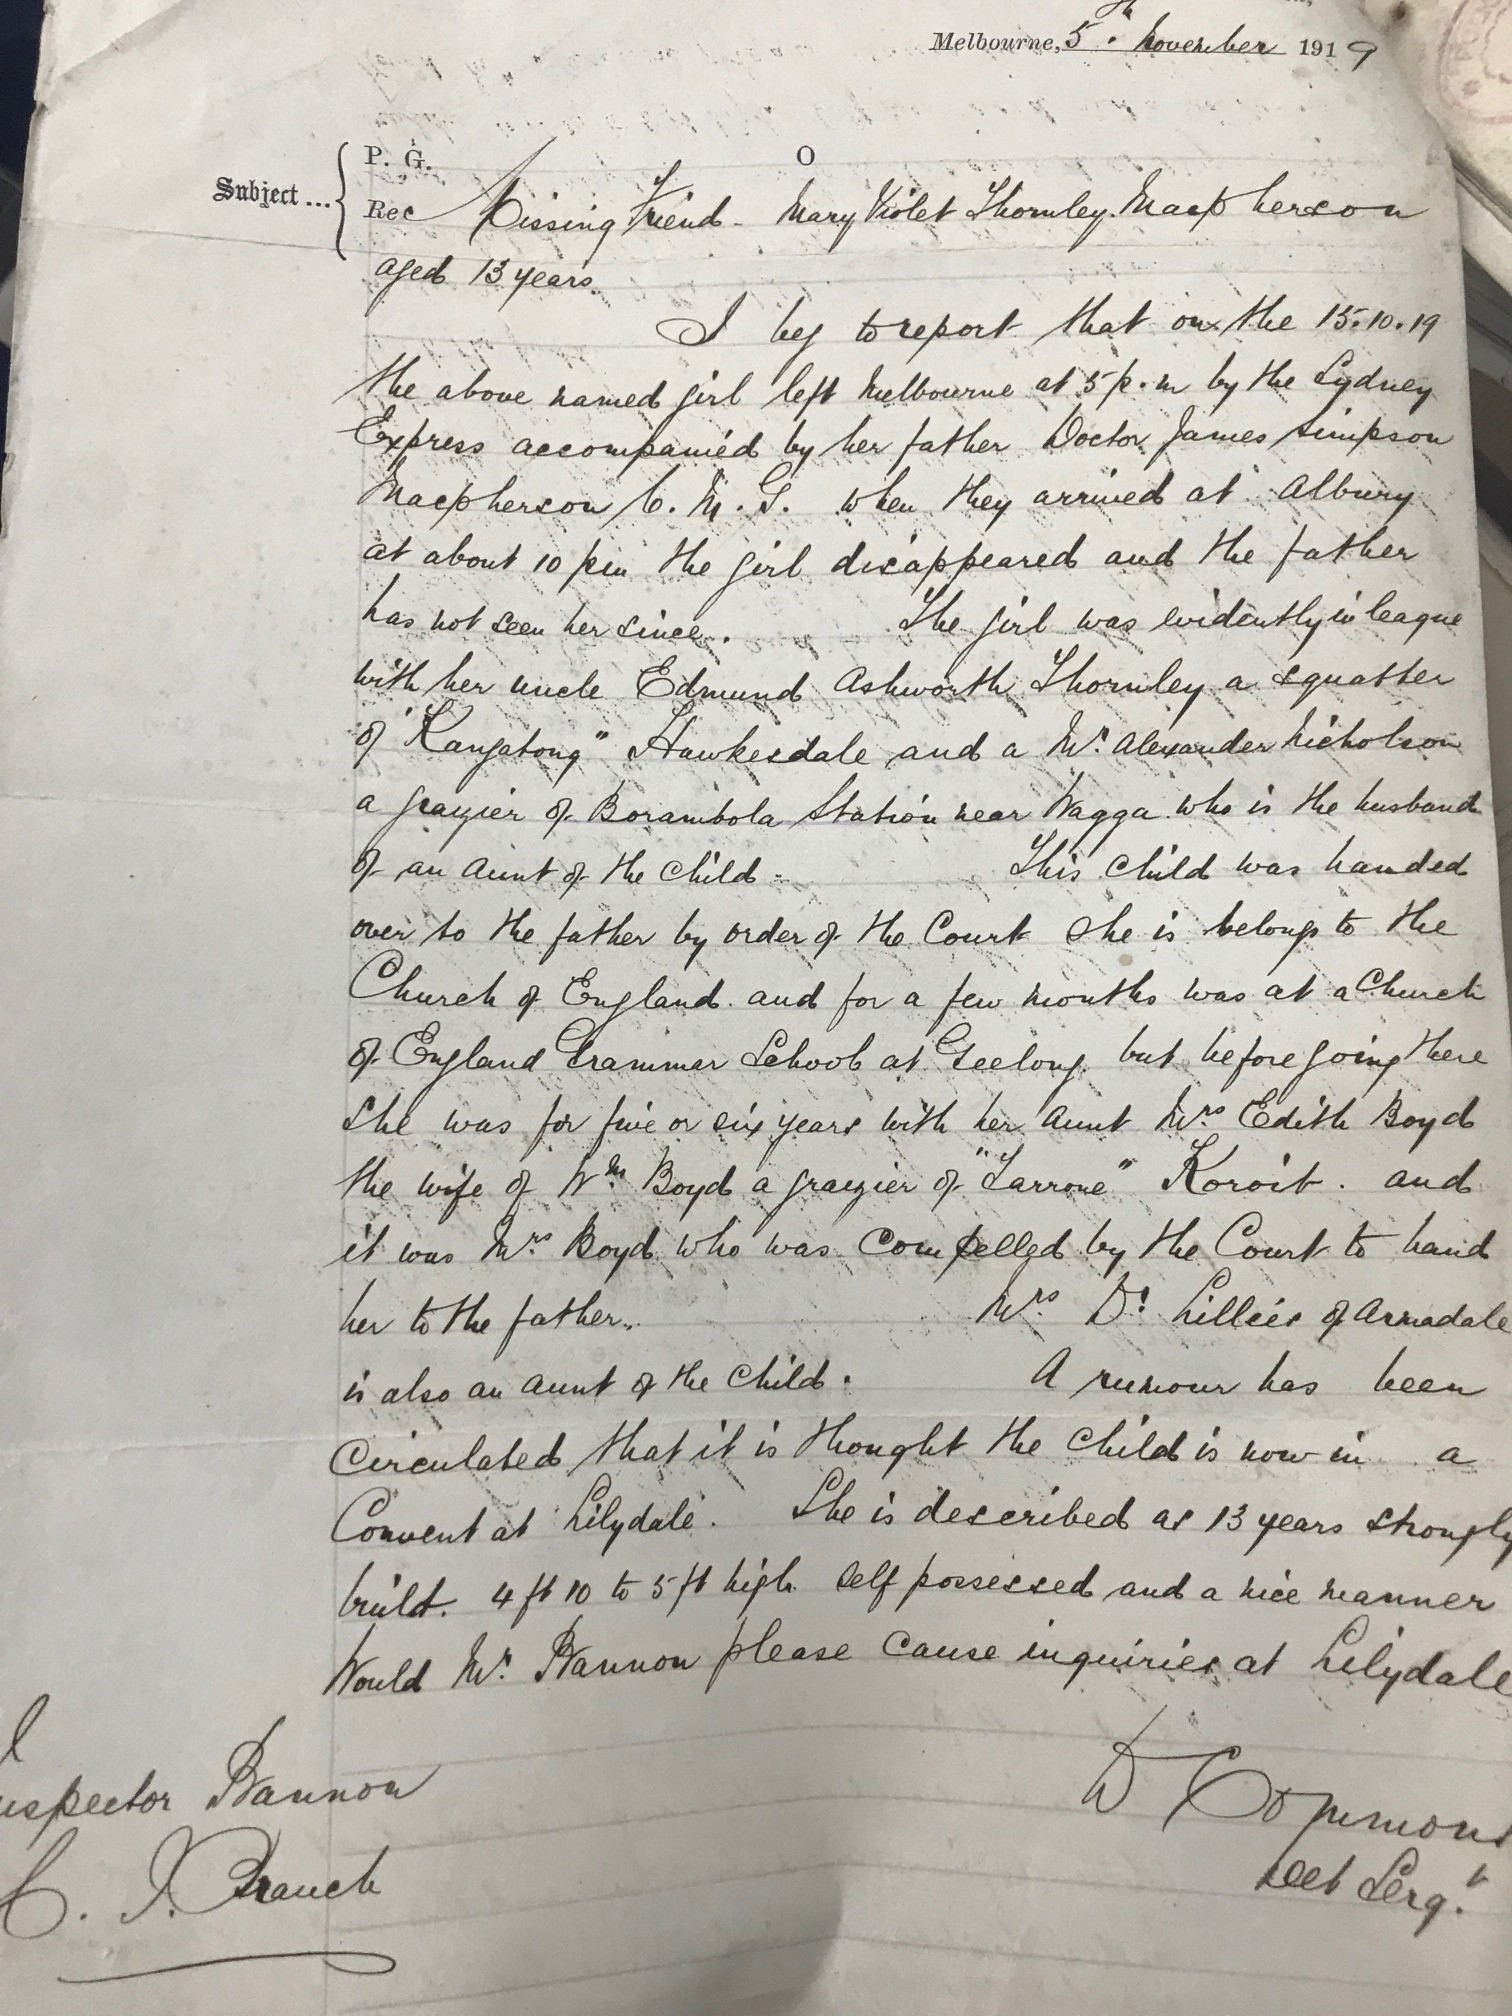 Melbourne, 5th November 1919
P. G. O
Subject...
Rec Missing Friend - Mary Violet Thornley Macpherson
aged 13 years.
I beg to report that on the 15.10.19
the above named girl left Melbourne at 5 p.m by the Sydney
Express accompanied by her father Doctor James Simpson
Macpherson C. M. G. when they arrived at Albury
at about 10 pm the girl disappeared and the father
has not seen her since. The girl was evidently in league
with her uncle Edmund Ashworth Thornley a squatter
of "Kangatong" Hawkesdale and a Mr. Alexander Nicholson
a grazier of Borambola Station near Wagga who is the husband
of an aunt of the child - This child was handed
over to the father by order of the Court she is belongs to the
Church of England and for a few months was at a Church
of England Grammar School at Geelong but before going there
she was for five or six years with her aunt Mrs Edith Boyd
the wife of Wm Boyd a grazier of "Tarrone" Koroit. and
it was Mrs Boyd who was compelled by the Court to hand
her to the father. Mrs Dr Lillies of Armadale
is also an aunt of the child. A rumour has been
circulated that it is thought the child is now in a
Convent at Lilydale. She is described as 13 years strongly
build. 4 ft 10 to 5 ft high self possessed and a nice manner
Would Mr. Bannon please cause inquiries at Lilydale
D
Det Sergt.
Inspector Bannon
C. I. Branch